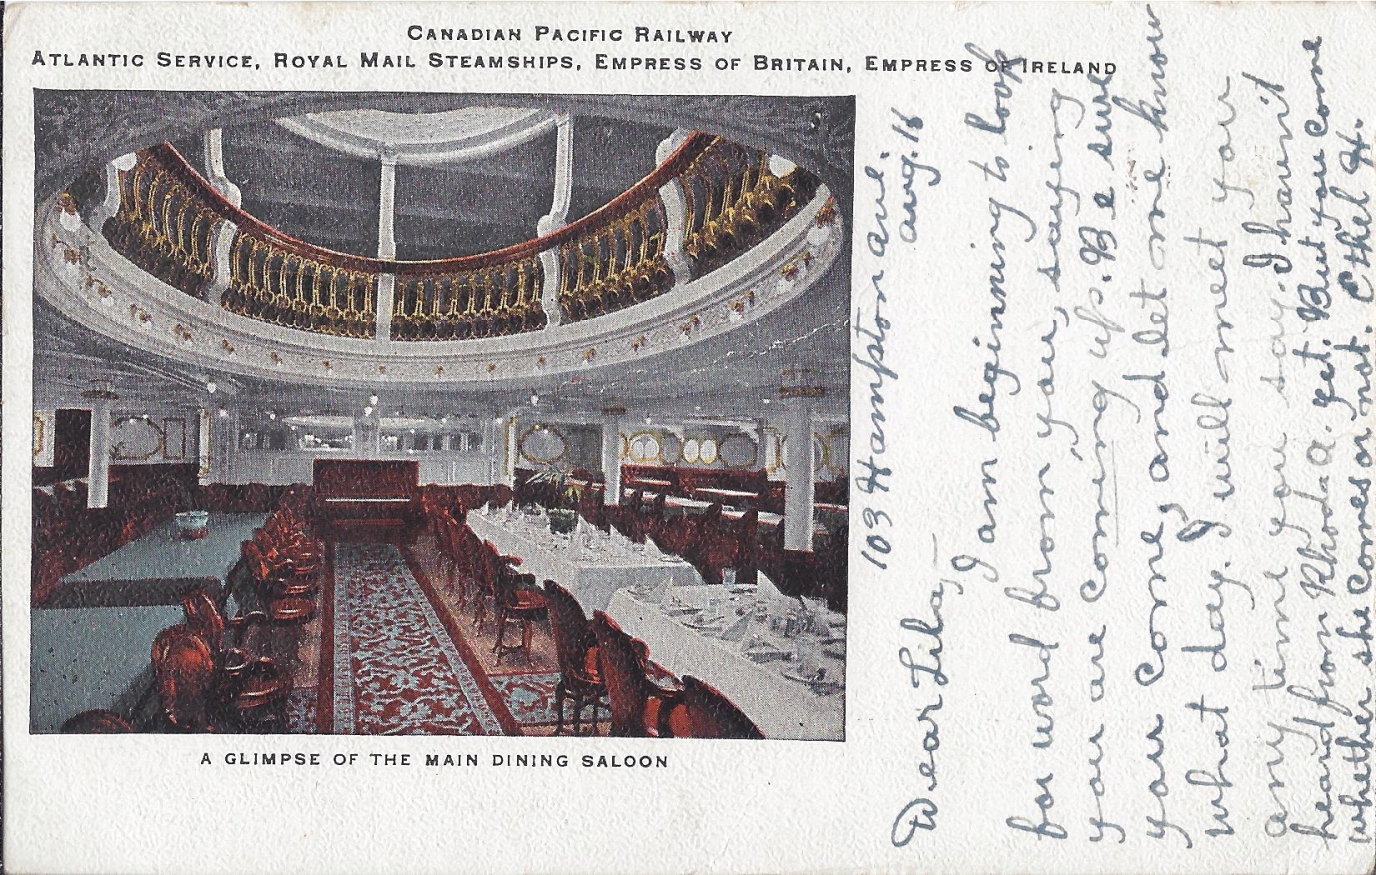 CANADIAN PACIFIC RAILWAY
ATLANTIC SERVICE, ROYAL MAIL STEAMSHIPS, EMPRESS OF BRITAIN, EMPRESS OF IRELAND
A GLIMPSE OF THE MAIN DINING SALOON
103 Hampston ave.
aug. 16
Dear Lila,—
I am beginning to look
for word from you, saying
you are coming up. Be sure
you come, and let me know
what day. I will meet you
any time you say. I havn't
heard from Rhoda A. yet. But you come
whether she comes or not. Ethel H.